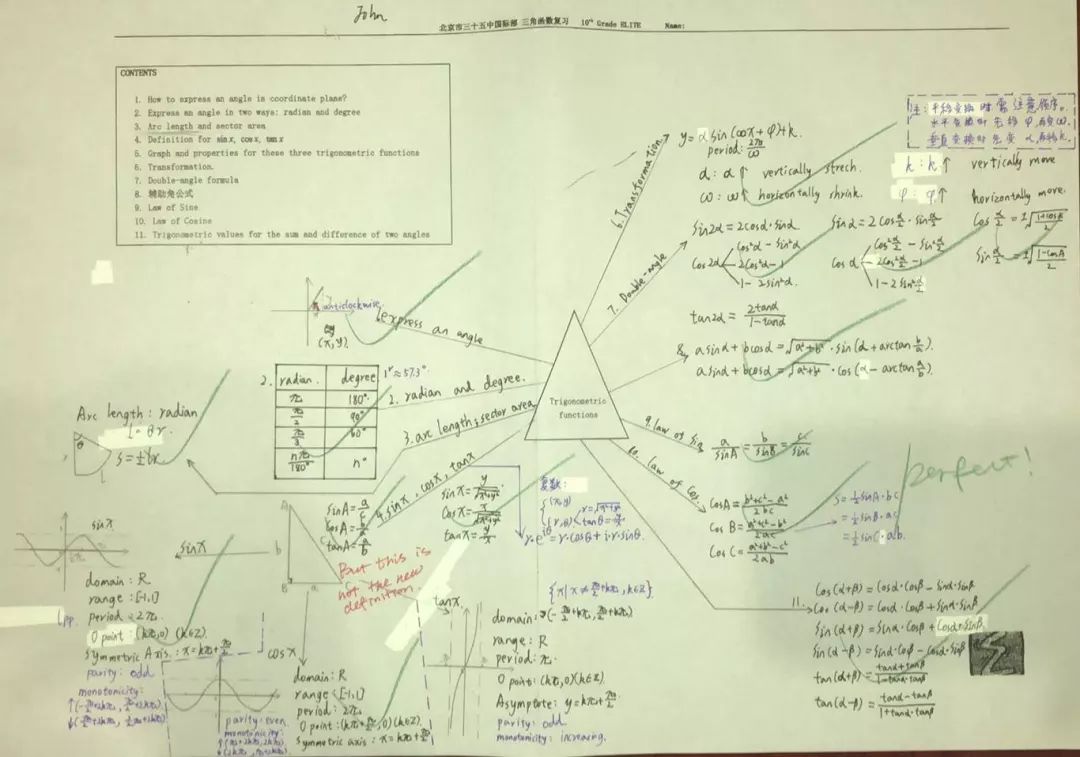 John
北京市三十五中国际部 三角函数复习 10th Grade ELITE Name:
CONTENTS
1. How to express an angle in coordinate plane?
2. Express an angle in two ways: radian and degree
3. Arc length and sector area
4. Definition for sin x, cos x, tan x
5. Graph and properties for these three trigonometric functions
6. Transformation.
7. Double-angle formula
8. 辅助角公式
9. Law of Sine
10. Law of Cosine
11. Trigonometric values for the sum and difference of two angles
Trigonometric
functions
1. express an angle
anticlockwise
(x, y)
2. radian and degree.
2.
radian. degree
π 180°
π/2 90°
π/3 60°
nπ/180° n°
1r ≈ 57.3°
3. arc length, sector area
Arc length: radian
l = θr.
4. sin x, cos x, tan x
sinA = a/c
cosA = b/c
tanA = a/b
A
b
B
a
sin x = y/√(x²+y²)
cos x = x/√(x²+y²)
tan x = y/x
But this is
not the new
definition.
复数:
(x, y)
(r, θ)
r = √(x²+y²)
tanθ = y/x
r·e^iθ = r·cosθ + i·r·sinθ.
sin x
sin x
domain: R
range: [-1,1]
period: 2π.
0 point: (kπ,0) (k∈Z).
symmetric Axis: x = kπ + π/2
parity: odd
monotonicity:
cos x
domain: R
range: [-1,1]
period: 2π
0 point: (kπ+π/2, 0) (k∈Z)
symmetric axis:
parity: even.
monotonicity:
tan x
{x | x ≠ π/2 + kπ, k∈Z}
domain: (-π/2+kπ, π/2+kπ)
range: R
period: π.
0 point: (kπ,0) (k∈Z).
Asymptote: y = kπ + π/2
parity: odd
monotonicity: increasing.
6. Transformation
y = α sin(ωx + φ) + k.
period: 2π/ω
α: α↑ vertically strech.
ω: ω↑ horizontally shrink.
注: 平移变换时需注意顺序.
k: k↑ vertically move
φ: φ↑ horizontally move.
7. Double-angle
sin2α = 2cosα·sinα
cos2α
cos²α - sin²α
2cos²α - 1
1 - 2sin²α.
tan2α = 2tanα/1-tanα
sinα = 2cos α/2 · sin α/2
cos α
cos² α/2 - sin² α/2
2cos² α/2 - 1
1 - 2sin² α/2
cos α/2 = ±√(1+cosA/2)
sin α/2 = ±√(1-cosA/2)
8. a sinα + b cosα = √(a²+b²) · sin(α + arctan b/a).
a sinα + b cosα = √(a²+b²) · cos(α - arctan a/b).
9. law of Sin
a/sinA = b/sinB = c/sinC
10. law of Cos.
cosA = b²+c²-a²/2bc
cos B = a²+c²-b²/2ac
cos C = a²+b²-c²/2ab
S = ½ sinA·bc
= ½ sinB·ac
= ½ sinC·ab.
perfect!
11.
cos(α+β) = cosα·cosβ - sinα·sinβ
cos(α-β) = cosα·cosβ + sinα·sinβ
sin(α+β) = sinα·cosβ + cosα·sinβ
sin(α-β) = sinα·cosβ - cosα·sinβ
tan(α+β) = tanα+tanβ/1-tanα·tanβ
tan(α-β) = tanα-tanβ/1+tanα·tanβ